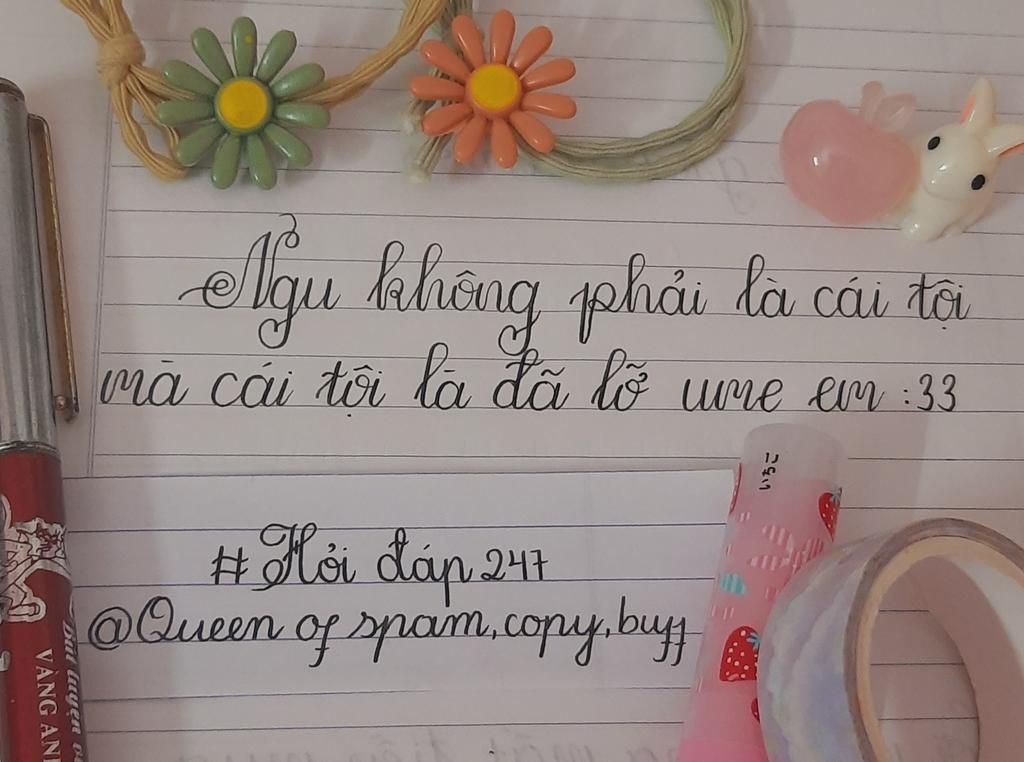 Ngu không phải là cái tội
mà cái tội là đã lỡ ume em :33
#Hỏi đáp 247
@Queen of spam, copy, buff
いちご
VÀNG ANH